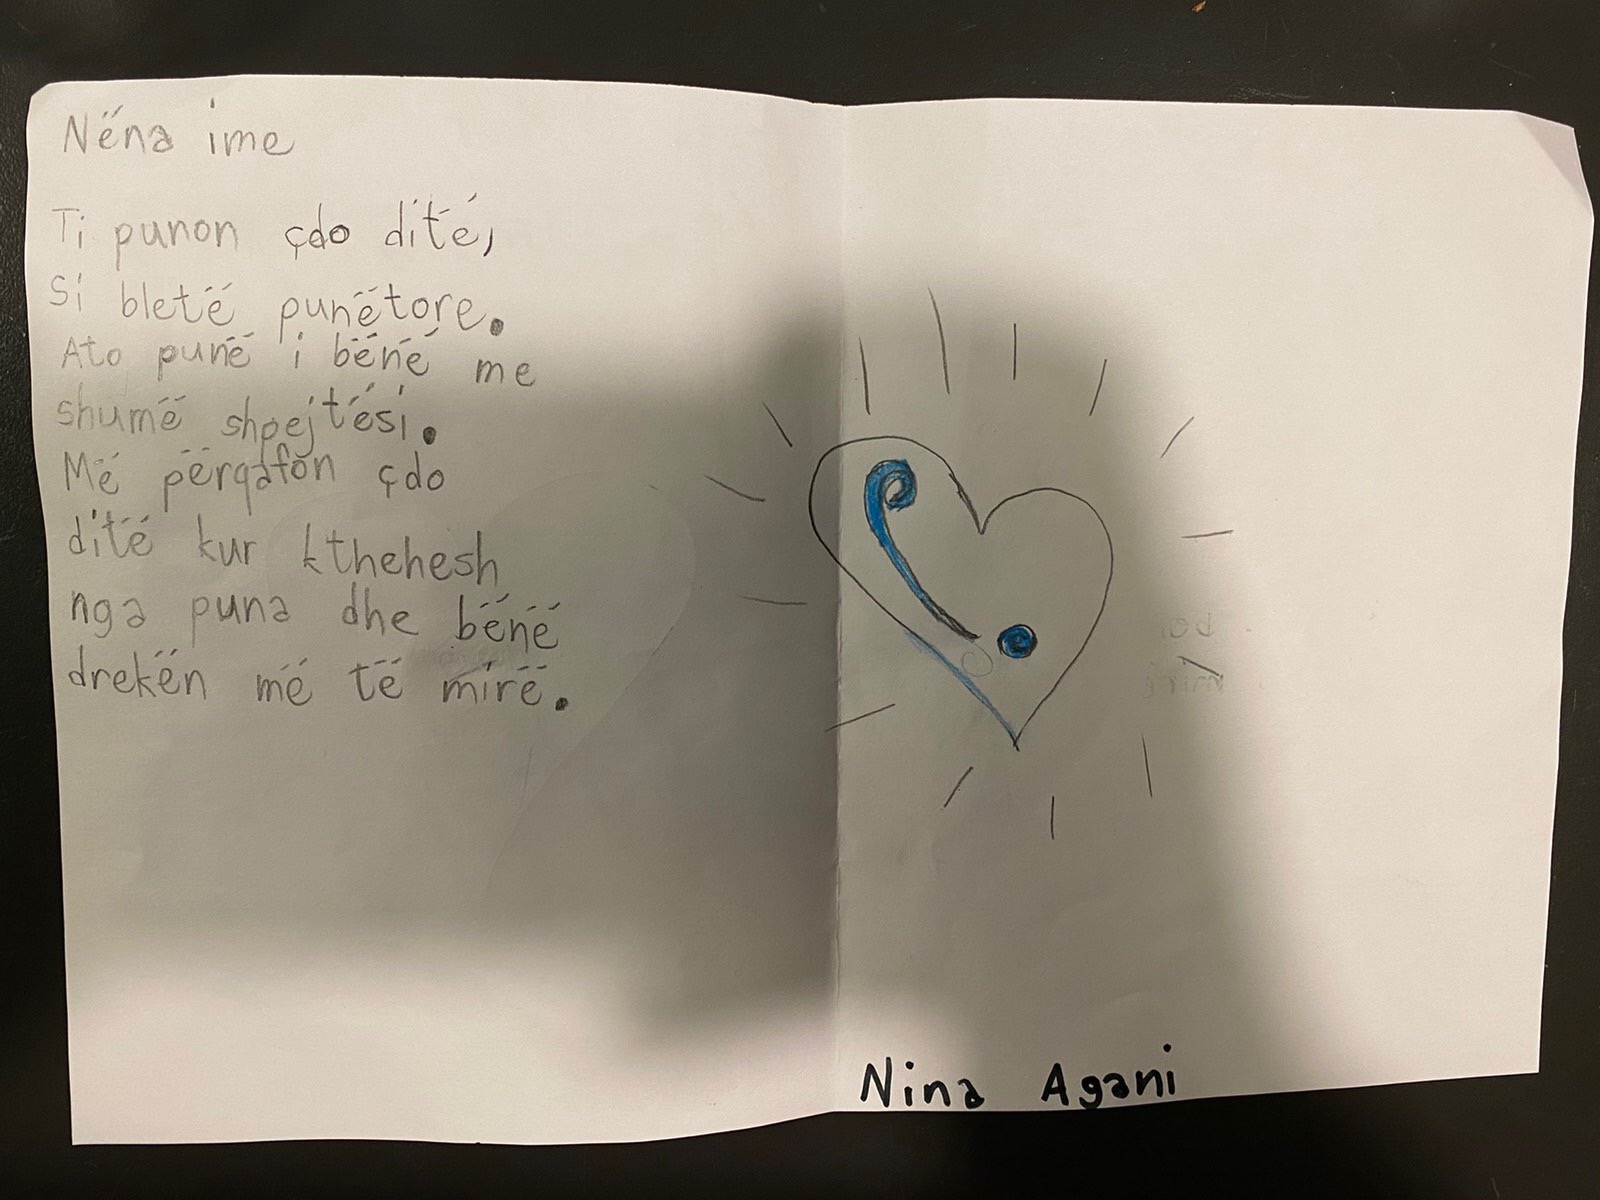 Nëna ime
Ti punon çdo ditë,
Si bletë punëtore.
Ato punë i bënë me
shumë shpejtësi.
Më përqafon çdo
ditë kur kthehesh
nga puna dhe bënë
drekën më të mirë.
Nina Agani